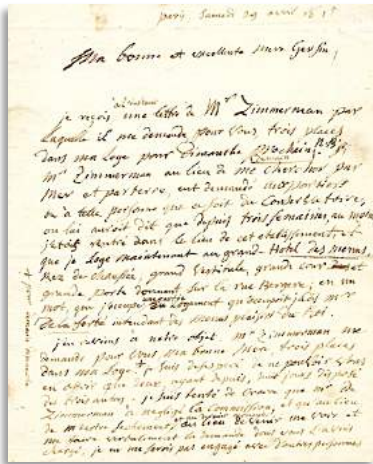 paris, Samedi 29 avril 18
Ma bonne et excellente mere Gersin,
à l'instant
je reçois une lettre de Mr Zimmerman par
laquelle il me demande pour vous trois places
dans ma loge pour Dimanche prochain
Mr Zimmerman au lieu de me chercher par
Mer et par terre, eut demandé aux portiers
ou à telle personne que ce soit du Conservatoire,
on lui auroit dit que depuis trois semaines au moins
j'etois rentré dans le lieu de cet etablissement, et
que je loge maintenant au grand Hotel des menus,
Rez de chaussée, grand Vestibule, grande cour et
grande porte donnant sur la rue Bergere, en un
mot, que j'occupe le logement qu'occupoit jadis mr
De la ferté intendant des menus plaisirs du Roi.
j'en reviens à notre objet. Mr Zimmerman me
demande pour vous ma bonne Mere, trois places
dans ma loge je suis desesperé de ne pouvoir vous
en offrir que deux, ayant depuis, jours disposé
des trois autres. je suis tenté de croire que mr
Zimmerman a negligé la Commission, et que au lieu
de m'ecrire seulement, au lieu de venir me voir et
me faire verbalement la demande dont vous l'aviez
chargé, je ne me serois pas engagé avec d'autres personnes